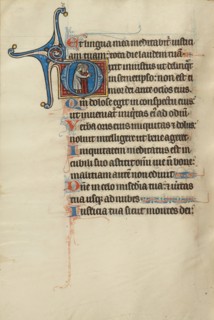 Et lingua mea meditabitur iusticiam
am tuam: tota die laudem tuam
ixit iniustus ut delinquat
in semetipso: non est ti
mor dei ante oculos eius
Qm dolose egit in conspectu eius
ut inueniatur iniquitas eius ad odium
Verba oris eius iniquitas et dolus
noluit intelligere ut bene ageret
Iniquitatem meditatus est in
cubili suo astitit omni uie non bone
maliciam autem non odiuit
Dne in celo misericordia tua: et ueritas
tua usque ad nubes
Iusticia tua sicut montes dei